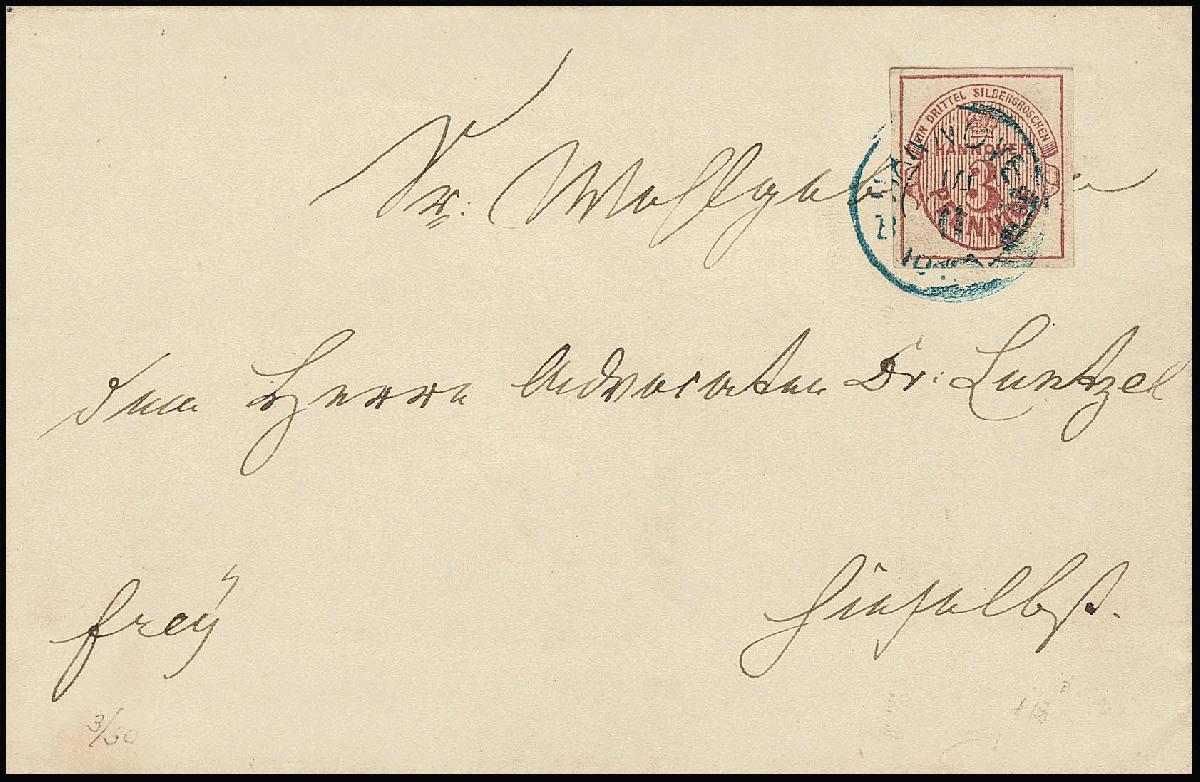 Sr. Wohlgeb
EIN DRITTEL SILBERGROSCHEN
HANNOVER
3
PFENNIG
HANNOVER
dem Herrn Advocaten Dr: Luntzel
frey
hieselbst.
3/60